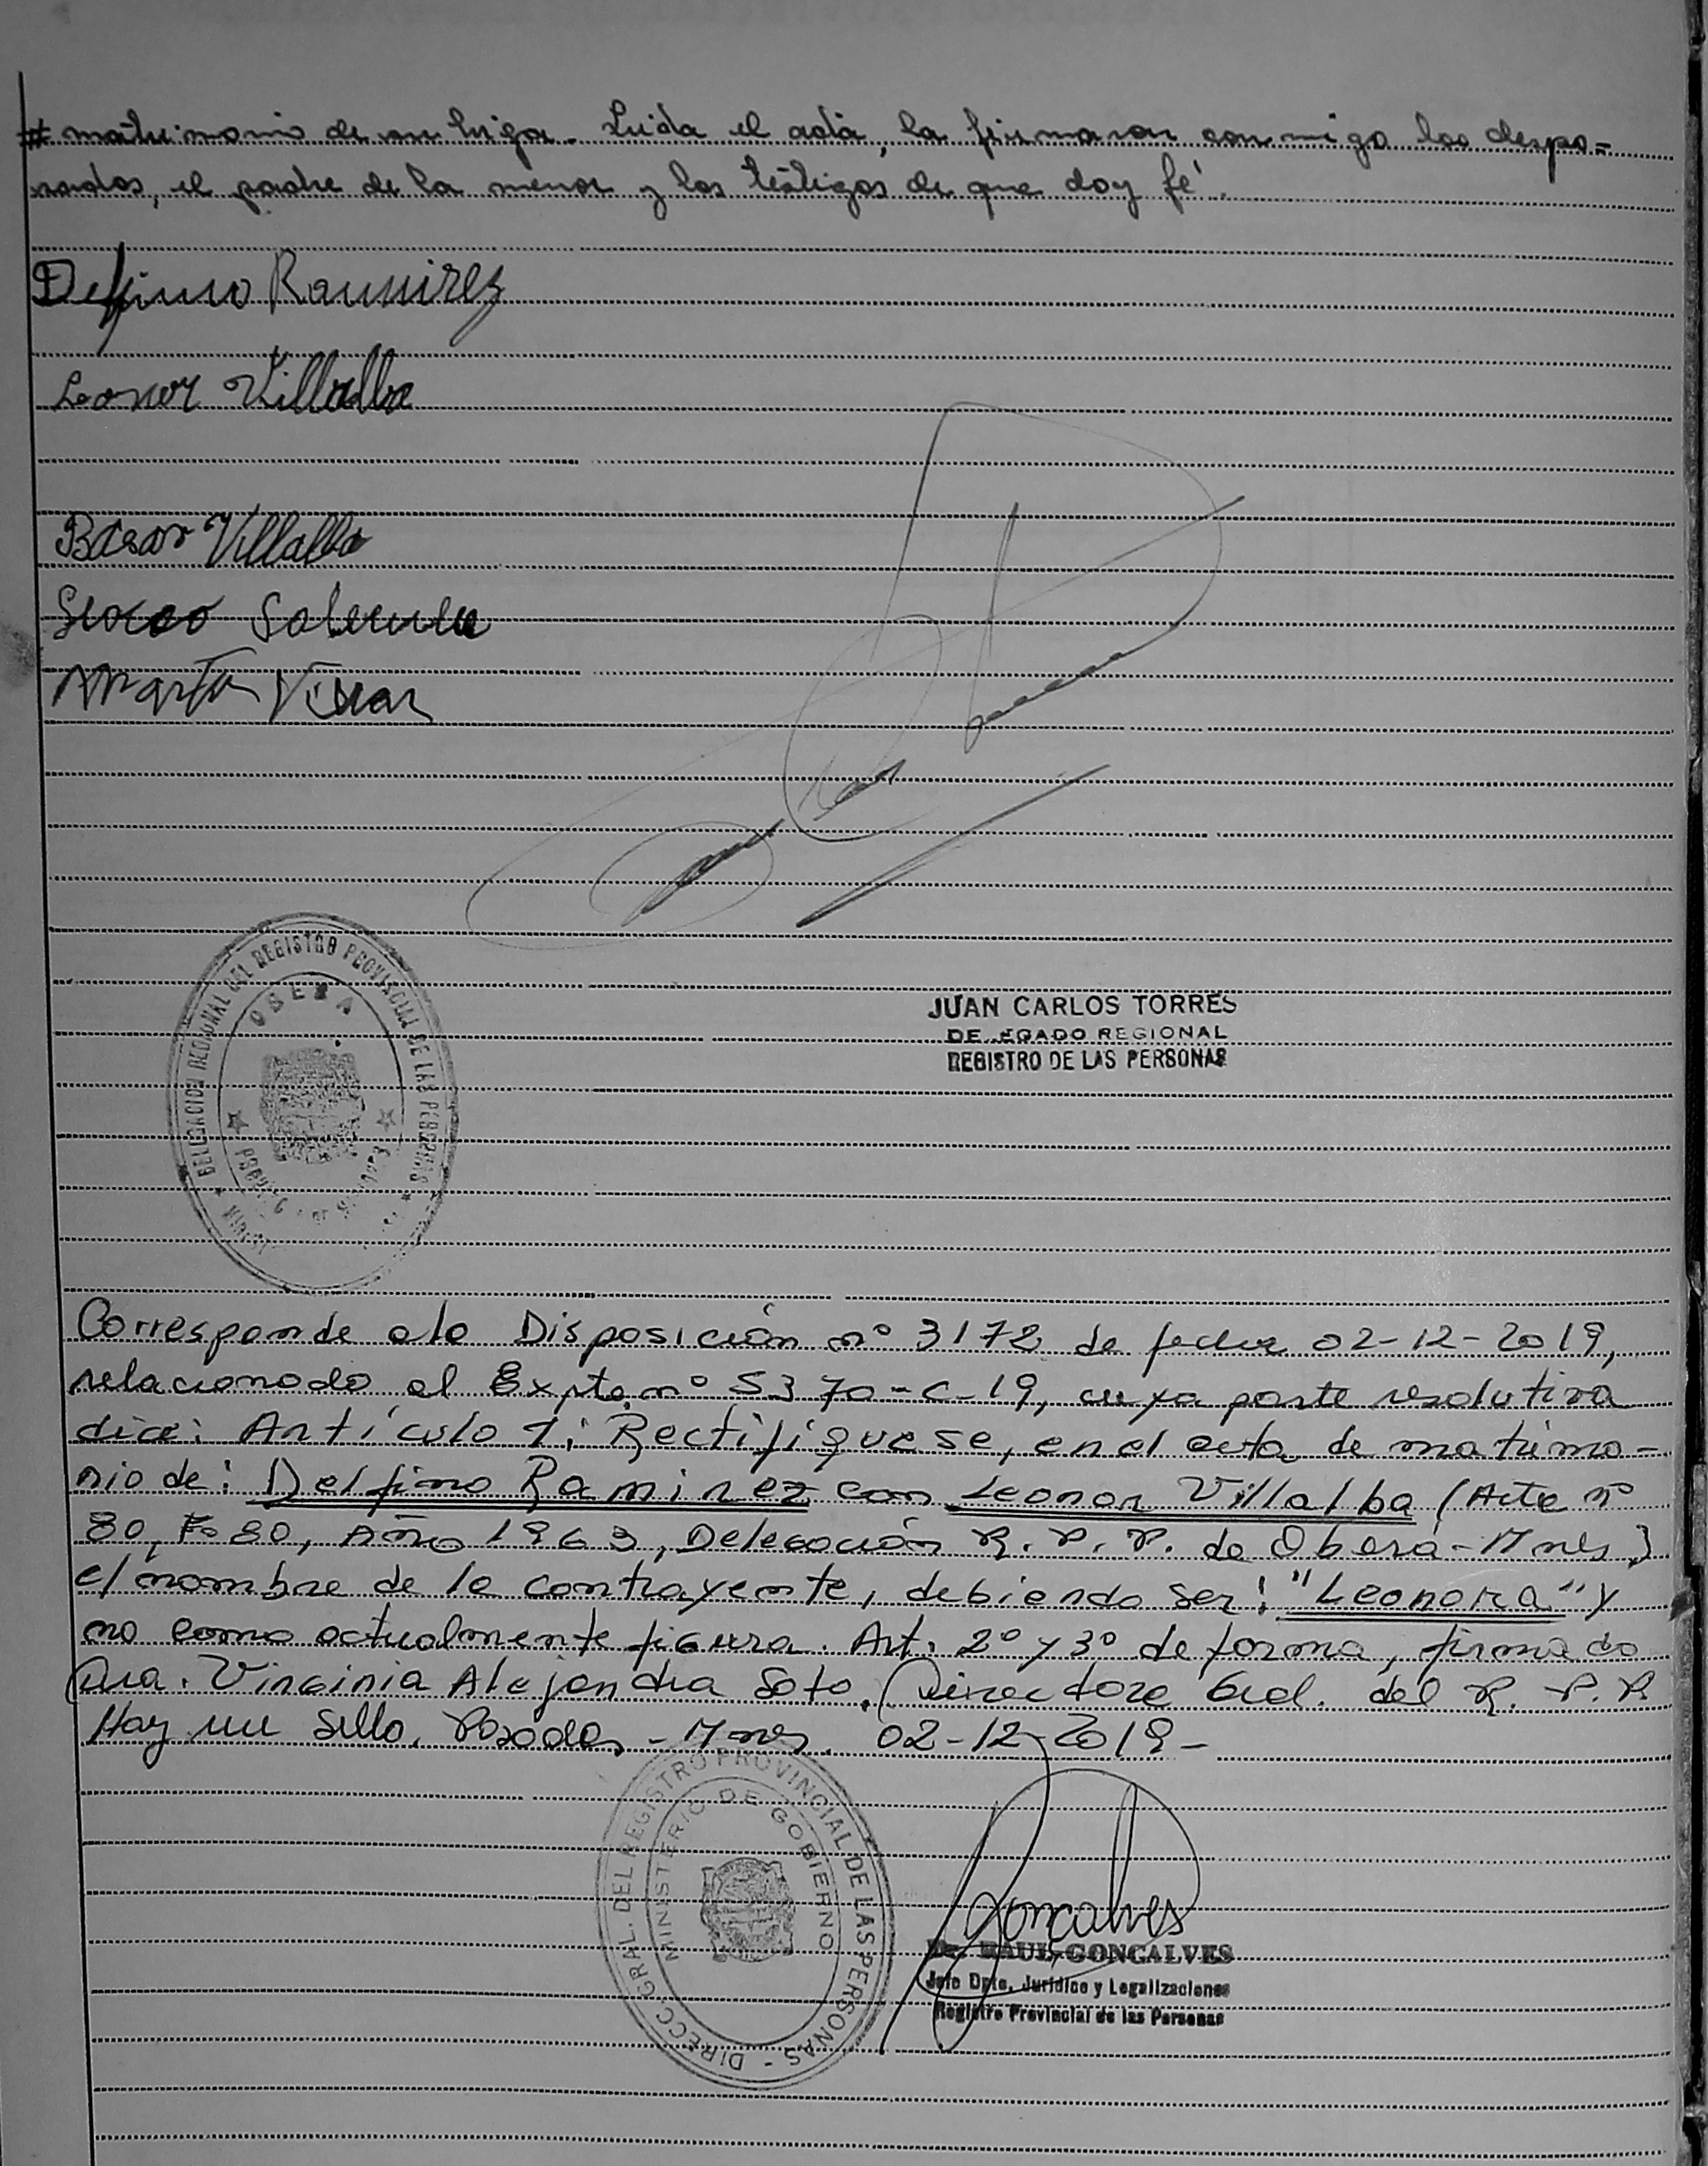 # matrimonio de su hija. Leida el acta, la firmaron conmigo los despo=
sados, el padre de la menor y los testigos de que doy fé.
Delfino Ramirez
Leonor Villalba
Villalba
Marta
JUAN CARLOS TORRES
DELEGADO REGIONAL
REGISTRO DE LAS PERSONAS
DELEGACION REGIONAL DEL REGISTRO PROVINCIAL DE LAS PERSONAS
OBERA
PROVINCIA DE MISIONES
Corresponde a la Disposición nº 3172 de fecha 02-12-2019,
relacionado al Expte nº 5370-C-19, cuya parte resolutiva
dice: Artículo 1: Rectifíquese, en el acta de matrimo-
nio de: Delfino Ramirez con Leonor Villalba (Acta nº
80, Fº 80, Año 1963, Delegación R. P. P. de Oberá - Mnes.)
el nombre de la contrayente, debiendo ser: "Leonora" y
no como actualmente figura. Art. 2º y 3º de forma, firmado
Dra. Virginia Alejandra Soto. Directora Gral. del R. P. P.
Hay un sello. Posadas - Mnes. 02-12-2019-
DIRECC. GRAL. DEL REGISTRO PROVINCIAL DE LAS PERSONAS -
MINISTERIO DE GOBIERNO
Goncalves
Dr. RAUL GONCALVES
Jefe Dpto. Jurídico y Legalizaciones
Registro Provincial de las Personas